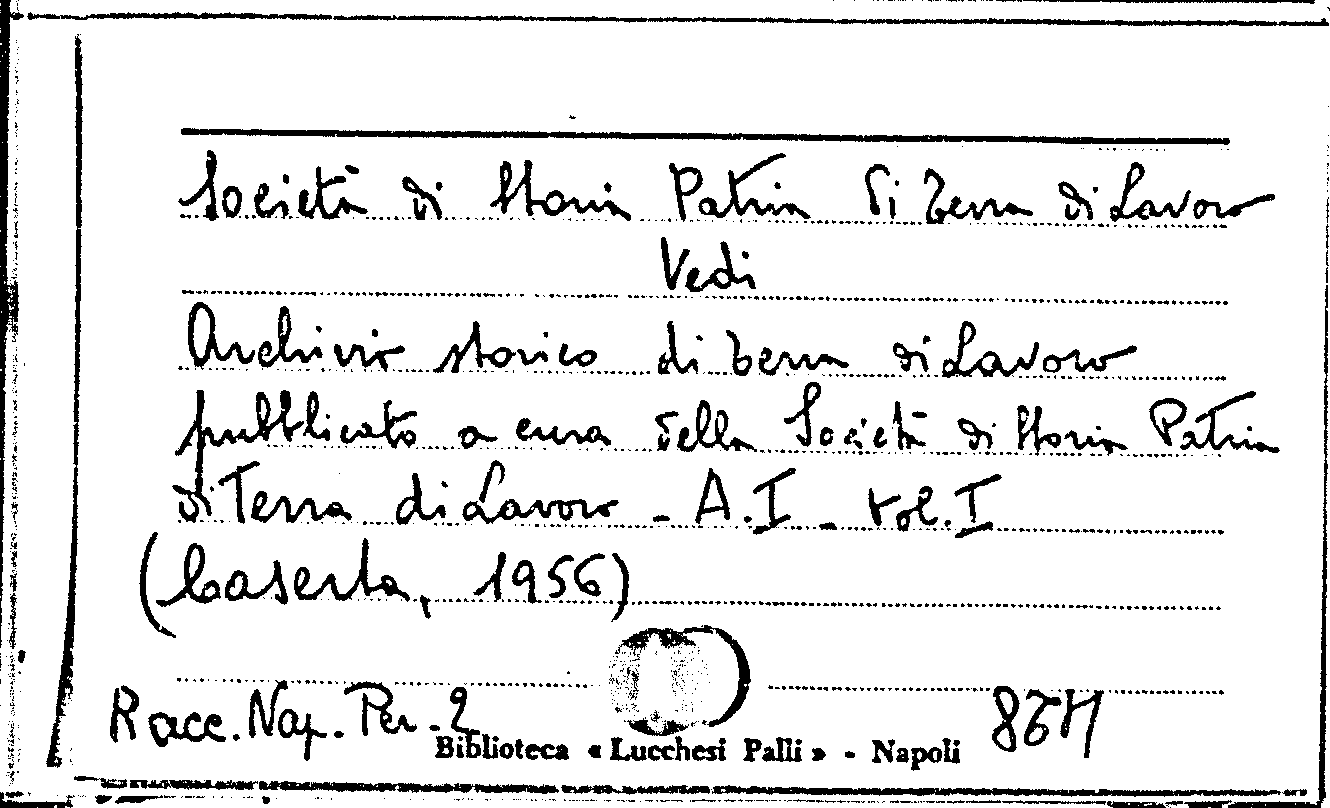 Società di Storia Patria di Terra di Lavoro
Vedi
Archivio storico di Terra di Lavoro
pubblicato a cura della Società di Storia Patria
di Terra di Lavoro - A.I - vol.I
(Caserta, 1956)
Racc. Nap. Per. 2
Biblioteca « Lucchesi Palli » - Napoli